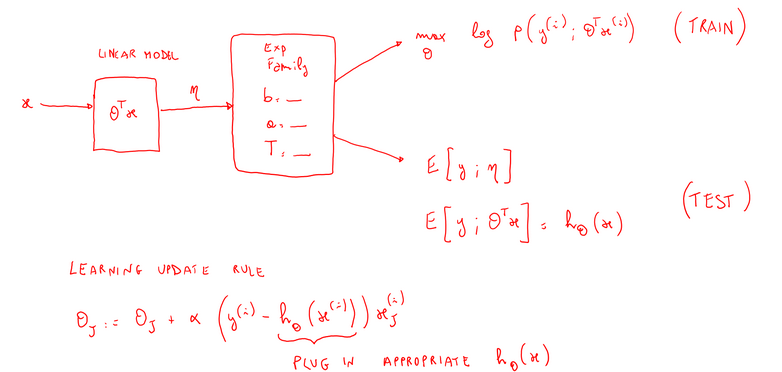 LINEAR MODEL
x
θᵀx
η
Exp
Family
b = __
a = __
T = __
max log P(y⁽ⁱ⁾; θᵀx⁽ⁱ⁾) (TRAIN)
θ
E[y; η]
E[y; θᵀx] = h_θ(x) (TEST)
LEARNING UPDATE RULE
θ_J := θ_J + α (y⁽ⁱ⁾ - h_θ(x⁽ⁱ⁾)) x_J⁽ⁱ⁾
PLUG IN APPROPRIATE h_θ(x)